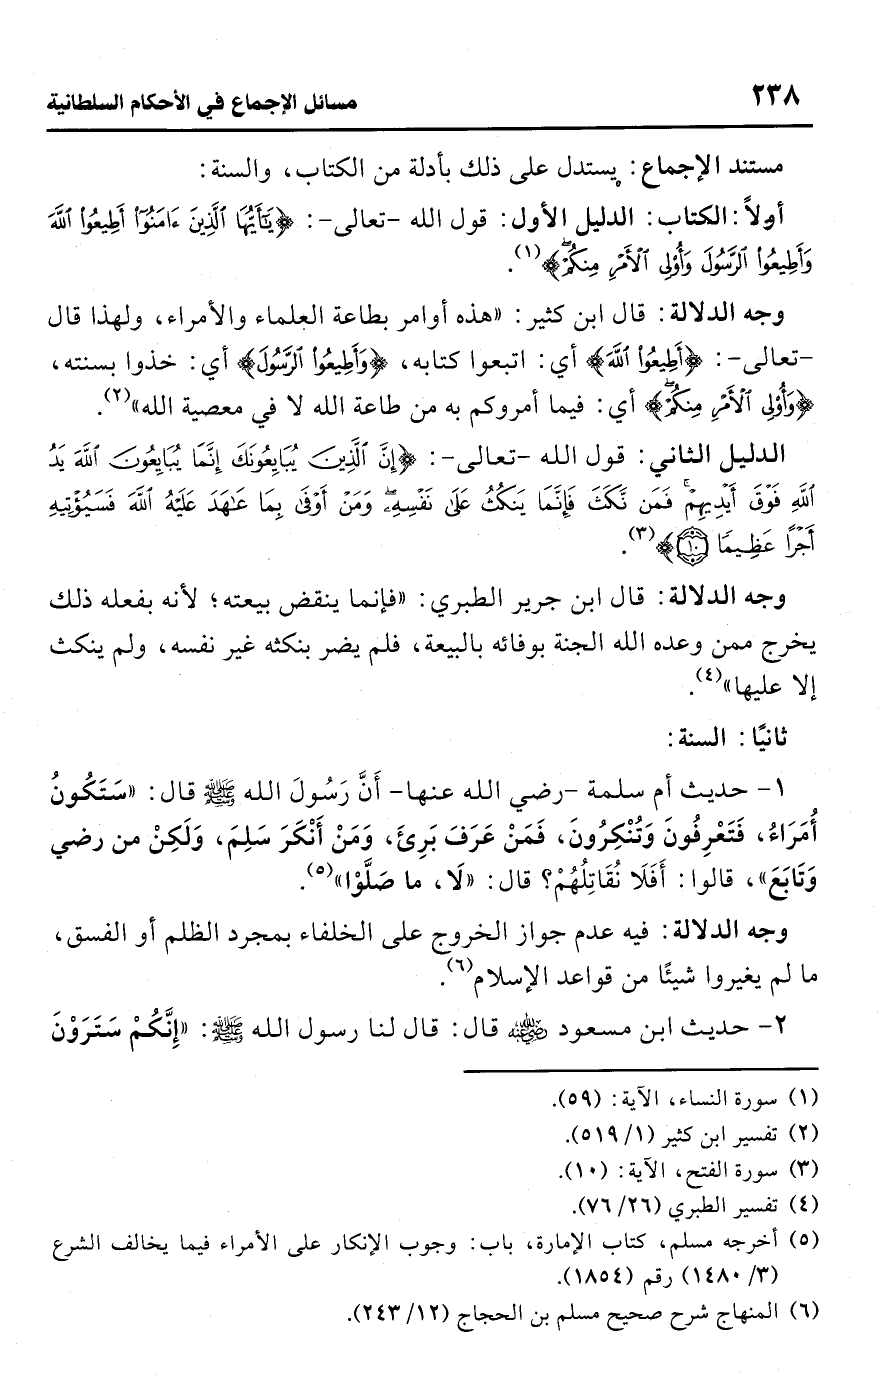 ٢٣٨
مسائل الإجماع في الأحكام السلطانية
مستند الإجماع: يستدل على ذلك بأدلة من الكتاب، والسنة:
أولاً: الكتاب: الدليل الأول: قول الله -تعالى-: ﴿يَٰٓأَيُّهَا ٱلَّذِينَ ءَامَنُوٓا۟ أَطِيعُوا۟ ٱللَّهَ
وَأَطِيعُوا۟ ٱلرَّسُولَ وَأُو۟لِى ٱلْأَمْرِ مِنكُمْ ۖ﴾(١).
وجه الدلالة: قال ابن كثير: «هذه أوامر بطاعة العلماء والأمراء، ولهذا قال
-تعالى-: ﴿أَطِيعُوا۟ ٱللَّهَ﴾ أي: اتبعوا كتابه، ﴿وَأَطِيعُوا۟ ٱلرَّسُولَ﴾ أي: خذوا بسنته،
﴿وَأُو۟لِى ٱلْأَمْرِ مِنكُمْ ۖ﴾ أي: فيما أمروكم به من طاعة الله لا في معصية الله»(٢).
الدليل الثاني: قول الله -تعالى-: ﴿إِنَّ ٱلَّذِينَ يُبَايِعُونَكَ إِنَّمَا يُبَايِعُونَ ٱللَّهَ يَدُ
ٱللَّهِ فَوْقَ أَيْدِيهِمْ ۚ فَمَن نَّكَثَ فَإِنَّمَا يَنكُثُ عَلَىٰ نَفْسِهِۦ ۖ وَمَنْ أَوْفَىٰ بِمَا عَٰهَدَ عَلَيْهُ ٱللَّهَ فَسَيُؤْتِيهِ
أَجْرًا عَظِيمًا ۝١٠﴾(٣).
وجه الدلالة: قال ابن جرير الطبري: «فإنما ينقض بيعته؛ لأنه بفعله ذلك
يخرج ممن وعده الله الجنة بوفائه بالبيعة، فلم يضر بنكثه غير نفسه، ولم ينكث
إلا عليها»(٤).
ثانيًا: السنة:
١- حديث أم سلمة -رضي الله عنها- أَنَّ رَسُولَ الله ﷺ قال: «سَتَكُونُ
أُمَرَاءُ، فَتَعْرِفُونَ وَتُنْكِرُونَ، فَمَنْ عَرَفَ بَرِئَ، وَمَنْ أَنْكَرَ سَلِمَ، وَلَكِنْ من رضي
وَتَابَعَ»، قالوا: أَفَلَا نُقَاتِلُهُمْ؟ قال: «لَا، ما صَلَّوْا»(٥).
وجه الدلالة: فيه عدم جواز الخروج على الخلفاء بمجرد الظلم أو الفسق،
ما لم يغيروا شيئًا من قواعد الإسلام(٦).
٢- حديث ابن مسعود رضي الله عنه قال: قال لنا رسول الله ﷺ: «إِنَّكُمْ سَتَرَوْنَ
(١) سورة النساء، الآية: (٥٩).
(٢) تفسير ابن كثير (١/ ٥١٩).
(٣) سورة الفتح، الآية: (١٠).
(٤) تفسير الطبري (٢٦/ ٧٦).
(٥) أخرجه مسلم، كتاب الإمارة، باب: وجوب الإنكار على الأمراء فيما يخالف الشرع
(٣/ ١٤٨٠) رقم (١٨٥٤).
(٦) المنهاج شرح صحيح مسلم بن الحجاج (١٢/ ٢٤٣).